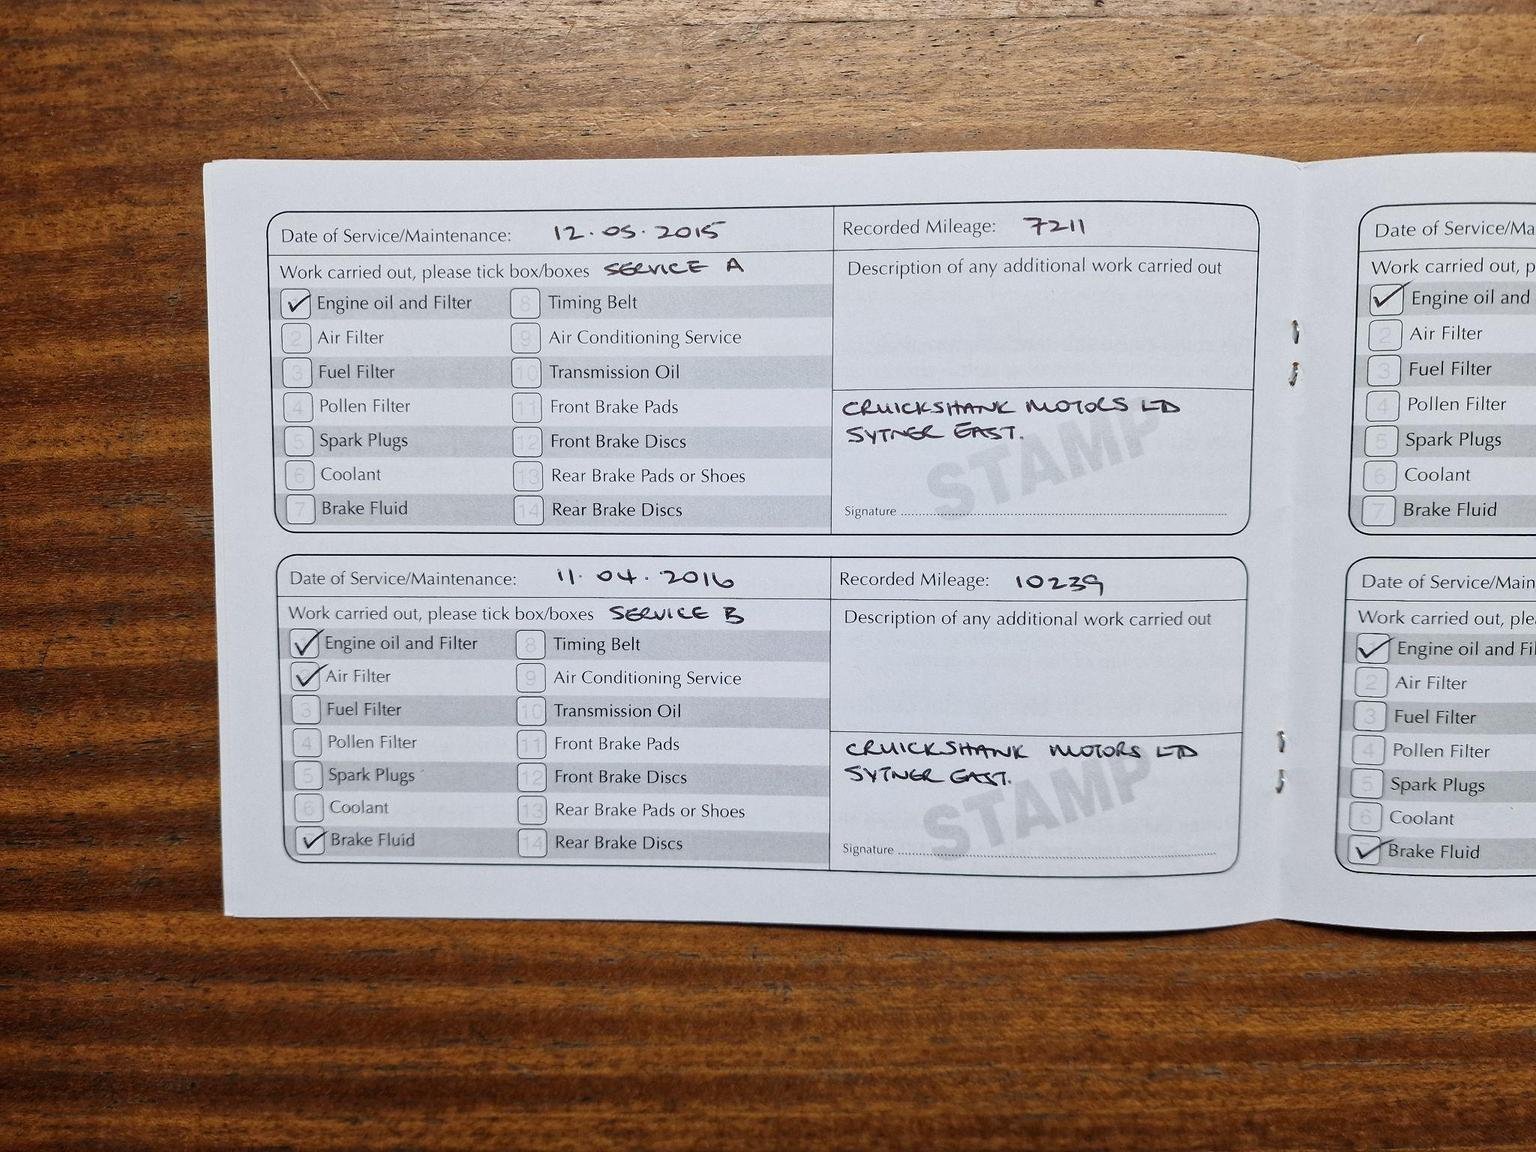 Date of Service/Maintenance: 12.05.2015
Recorded Mileage: 7211
Work carried out, please tick box/boxes SERVICE A
Engine oil and Filter
2 Air Filter
3 Fuel Filter
4 Pollen Filter
5 Spark Plugs
6 Coolant
7 Brake Fluid
8 Timing Belt
9 Air Conditioning Service
10 Transmission Oil
11 Front Brake Pads
12 Front Brake Discs
13 Rear Brake Pads or Shoes
14 Rear Brake Discs
Description of any additional work carried out
CRUICKSHANK MOTORS LTD
SYTNER EAST.
STAMP
Signature
Date of Service/Maintenance: 11.04.2016
Recorded Mileage: 10239
Work carried out, please tick box/boxes SERVICE B
Engine oil and Filter
Air Filter
3 Fuel Filter
4 Pollen Filter
5 Spark Plugs
6 Coolant
Brake Fluid
8 Timing Belt
9 Air Conditioning Service
10 Transmission Oil
11 Front Brake Pads
12 Front Brake Discs
13 Rear Brake Pads or Shoes
14 Rear Brake Discs
Description of any additional work carried out
CRUICKSHANK MOTORS LTD
SYTNER EAST.
STAMP
Signature
Date of Service/Ma
Work carried out, p
Engine oil and
2 Air Filter
3 Fuel Filter
4 Pollen Filter
5 Spark Plugs
6 Coolant
7 Brake Fluid
Date of Service/Main
Work carried out, ple
Engine oil and Fil
2 Air Filter
3 Fuel Filter
4 Pollen Filter
5 Spark Plugs
6 Coolant
Brake Fluid